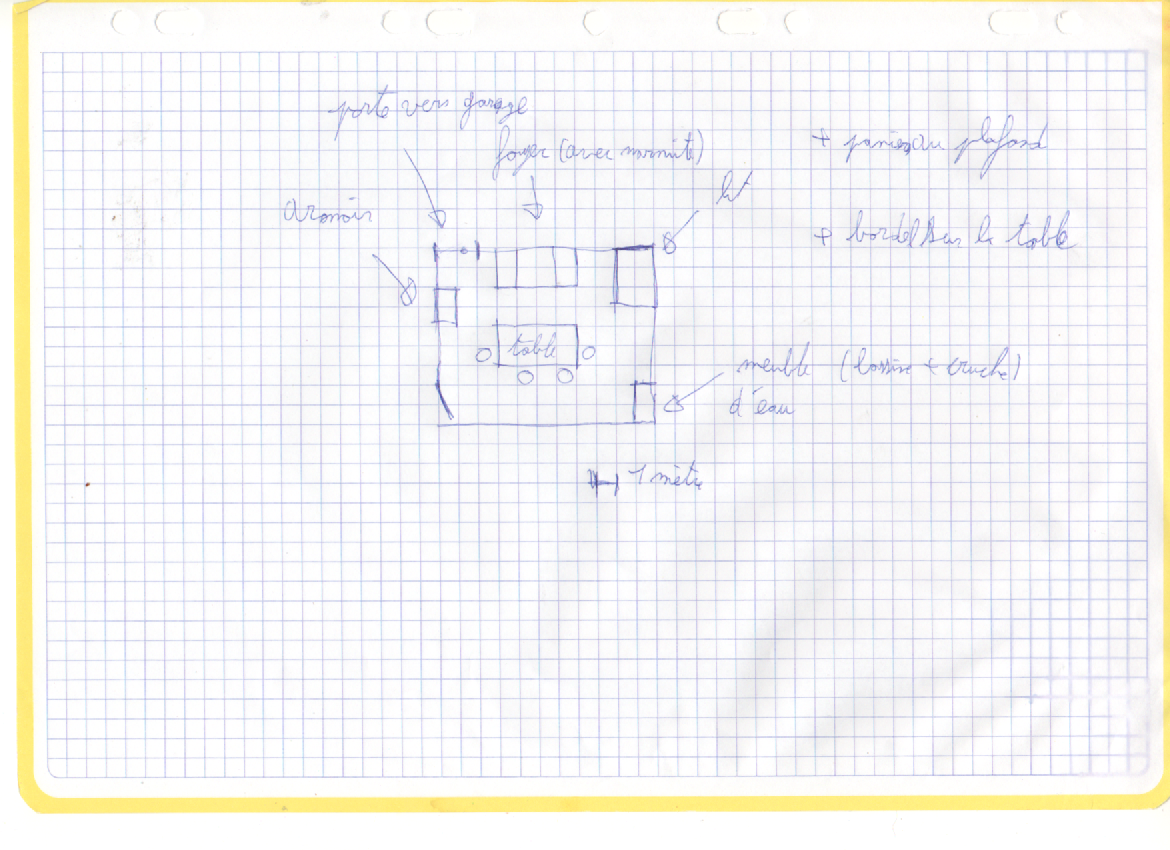 porte vers garage
foyer (avec marmite)
+ panier au plafond
lit
armoir
+ bordel sur la table
table
meuble (bassine + cruche)
d'eau
1 mètre